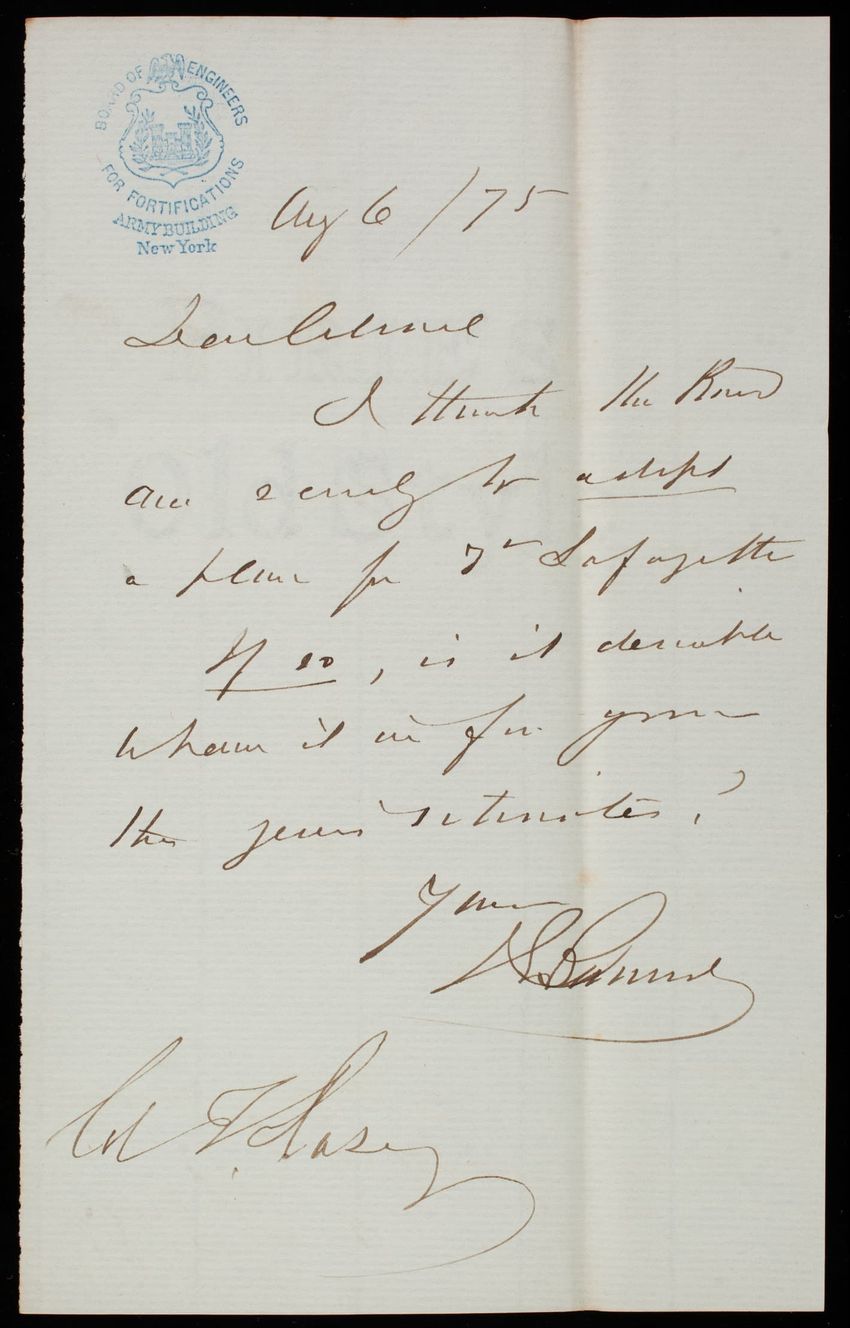 BOARD OF ENGINEERS
FOR FORTIFICATIONS
ARMY BUILDING
New York
Aug 6 / 75
Dear Colonel
I think the Board
are ready to adopt
a plan for Ft Lafayette
If so, is it desirable
to have it in for your
this years estimates?
Yours
Col T L Casey